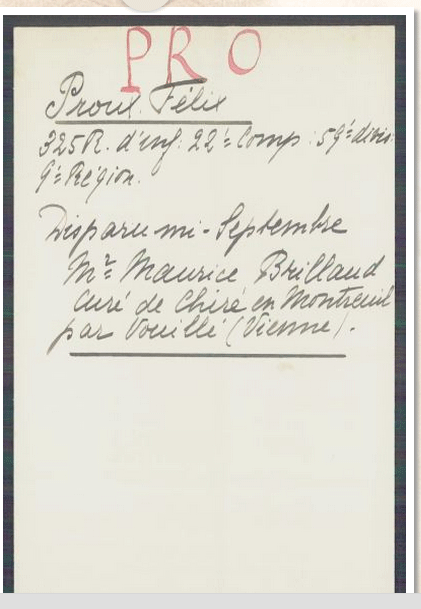 PRO
Proux Félix
325 R. d'inf. 22e Comp. 59e divis.
9e Région.
Disparu mi-Septembre
Mr Maurice Brillaud
Curé de Chiré en Montreuil
par Vouillé (Vienne).